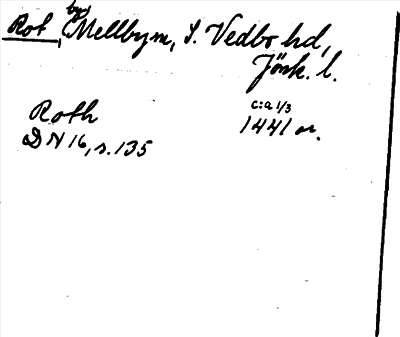 Rot, by, Mellby sn, S. Vedbo hd,
Jönk. l.
Roth
c:a 1/3
DN 16, s. 135
1441 or.